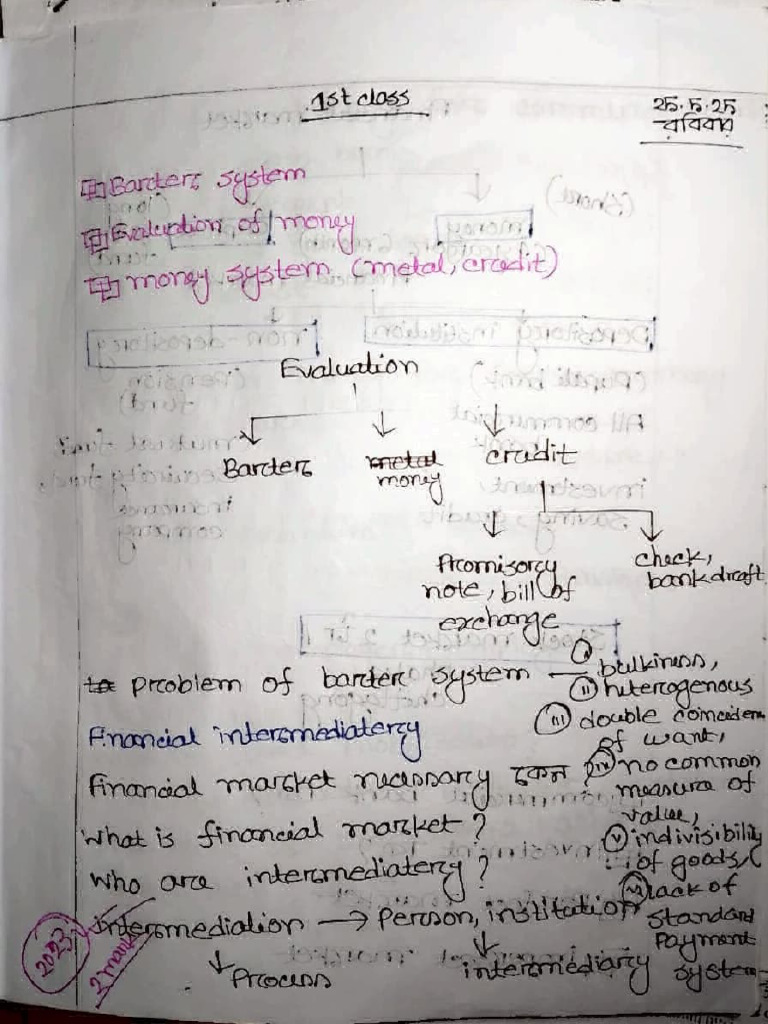 1st class
২৫.৫.২৫
রবিবার
Barter system
Evaluation of money
money system (metal, credit)
Evaluation
Barter metal credit
money
Promisory
note, bill of
exchange
check,
bank draft
problem of barter system — i bulkiness,
ii heterogenous
Financial intermediatery
iii double coinciden
of want,
Financial market necessary কেন ?
iv no common
measure of
value,
what is financial market ?
v indivisibility
of goods,
who are intermediatery ?
vi lack of
standard
payment
system
intermediation → Person, institution
↓ Process
↓ intermediary
2023